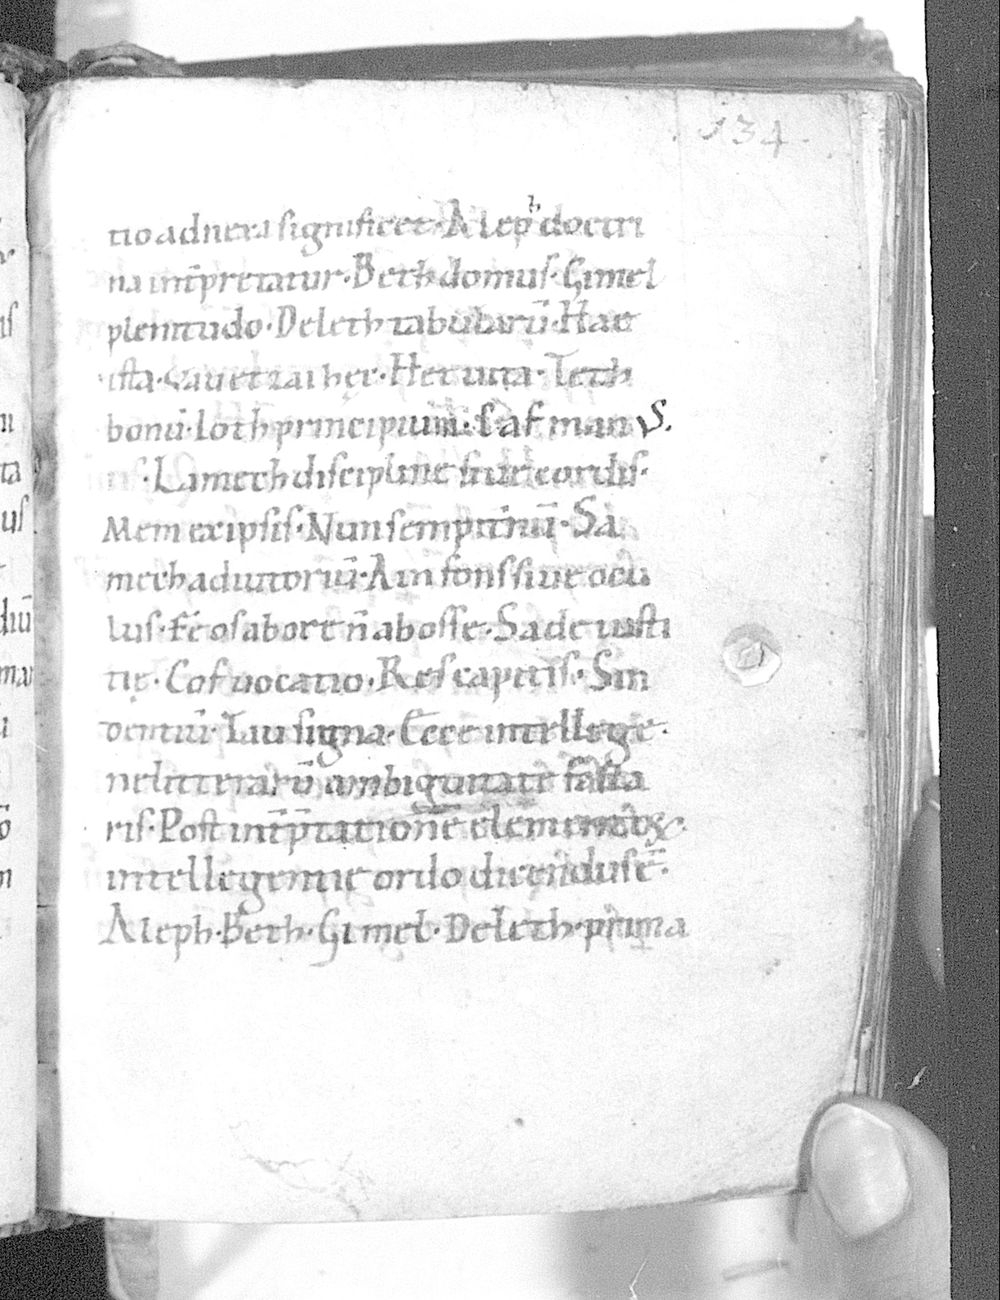 134
tio ad nera significet· Alep^h doctri
na int̄pretatur· Beth domus· Gimel
plenitudo· Deleth tabularū· Hae
ista· Vau et zai hęc· Het uita· Teth
bonū· Ioth principium· Caf manuS.
Lamech discipline siue cordis·
Mem ex ipsis· Nun sempit̄nū· Sa
mech adiutoriū· Ain fons siue ocu
lus· Fe os ab ore n̄ ab osse· Sade iusti
tię· Cof uocatio· Res capitis· Sin
dentiū· Tau signa· Cece intellegie·
ne litterarū ambiguitate
ris· Post int̄p̄tationē elementoꝝ·
intellegentie ordo dicendus ē·
Aleph· Beth· Gimel· Deleth· prima